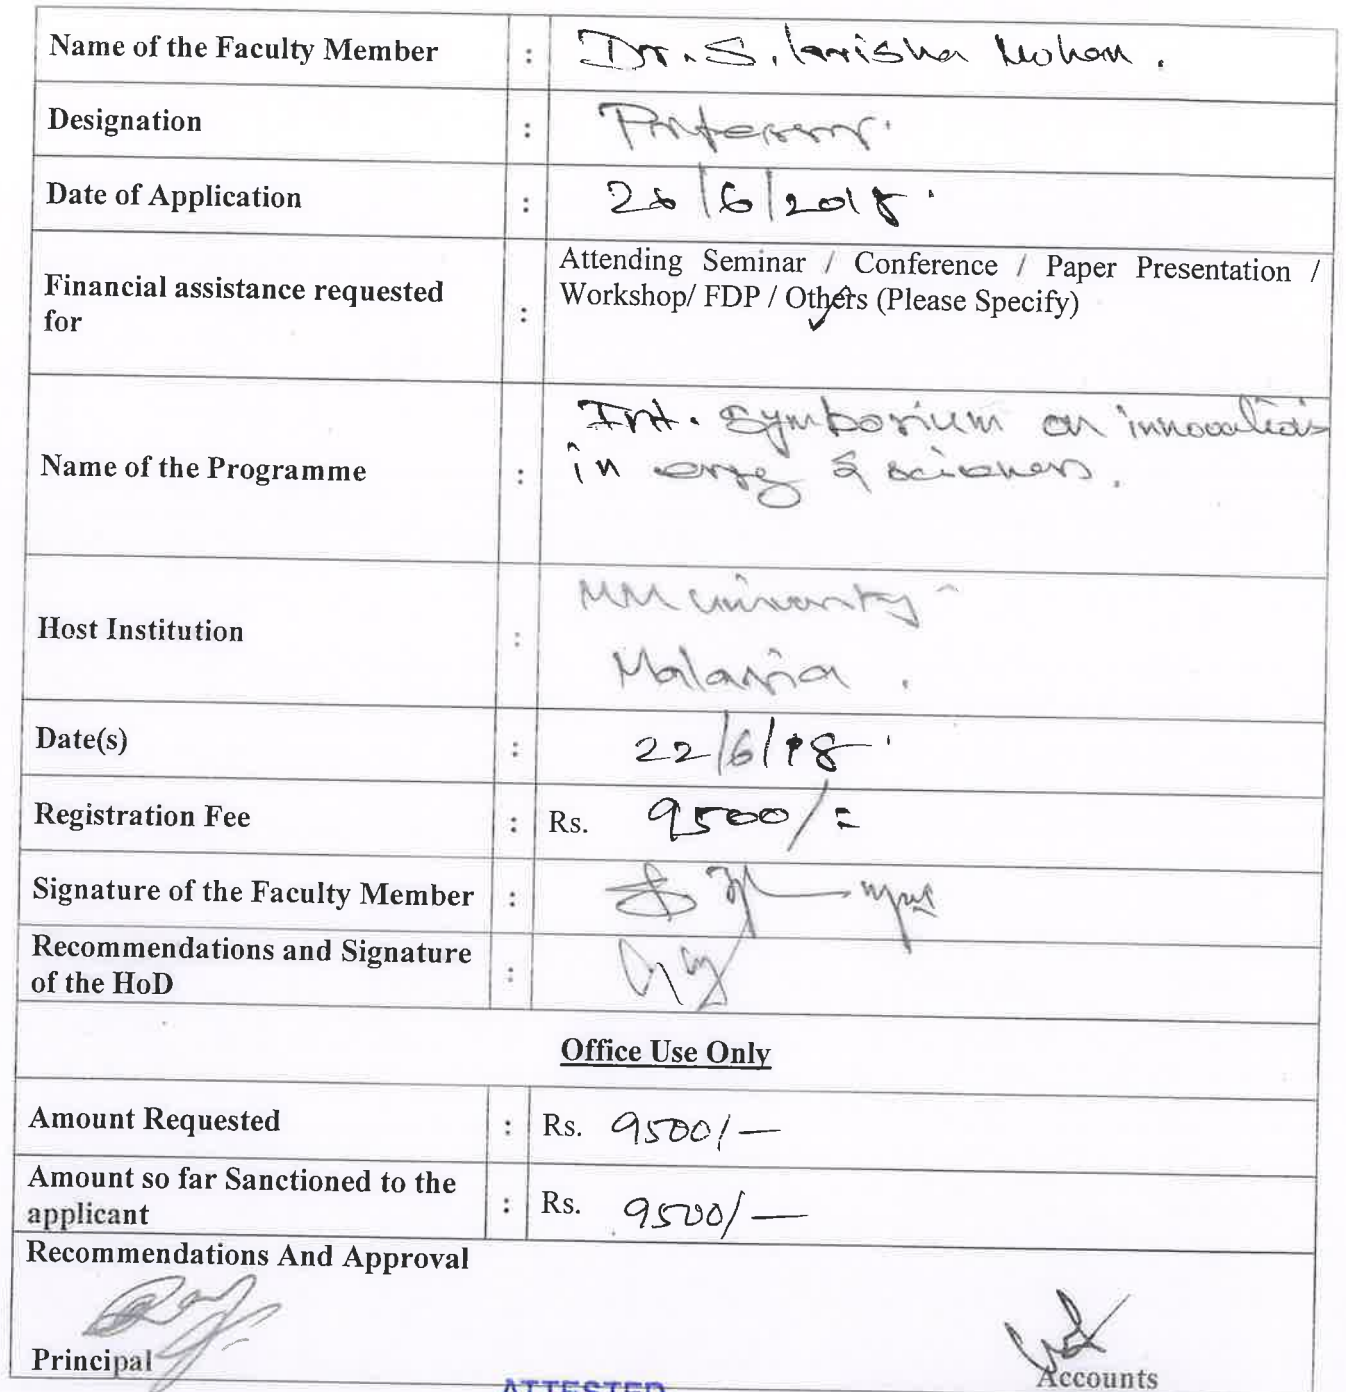 Name of the Faculty Member : Dr. S. krisha Mohan.
Designation : Professor.
Date of Application : 26/6/2018.
Financial assistance requested for : Attending Seminar / Conference / Paper Presentation /
Workshop/ FDP / Others (Please Specify) ✓
Name of the Programme : Int. Symbosium on innovations
in engg & sciences.
Host Institution : MM University
Malaysia.
Date(s) : 22/6/18.
Registration Fee : Rs. 9500/=
Signature of the Faculty Member :
Recommendations and Signature of the HoD :
Office Use Only
Amount Requested : Rs. 9500/—
Amount so far Sanctioned to the applicant : Rs. 9500/—
Recommendations And Approval
Principal
Accounts
ATTESTED